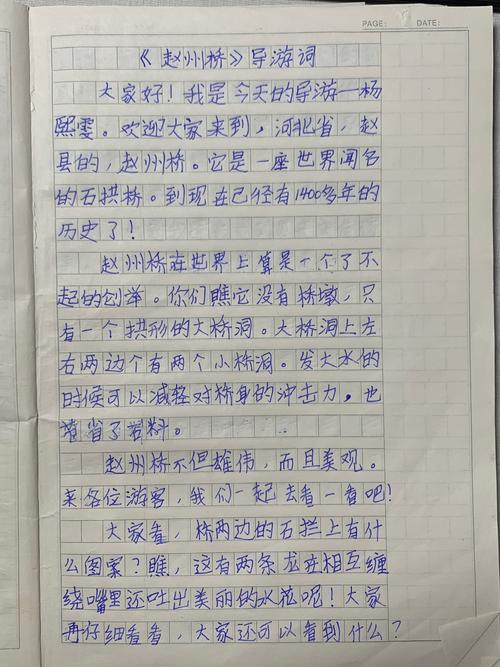 PAGE: DATE:
《赵州桥》导游词
大家好!我是今天的导游一杨
熙雯。欢迎大家来到,河北省,赵
县的,赵州桥。它是一座世界闻名
的石拱桥。到现在已经有1400多年的
历史了!
赵州桥在世界上算是一个了不
起的创举。你们瞧它没有桥墩,只
有一个拱形的大桥洞。大桥洞上左
右两边个有两个小桥洞。发大水的
时候可以减轻对桥身的冲击力,也
节省了石料。
赵州桥不但雄伟,而且美观。
来各位游客,我们一起去看一看吧!
大家看,桥两边的石拦上有什
么图案?瞧,这有两条龙在相互缠
绕嘴里还吐出美丽的水花呢!大家
再仔细看看,大家还可以看到什么?